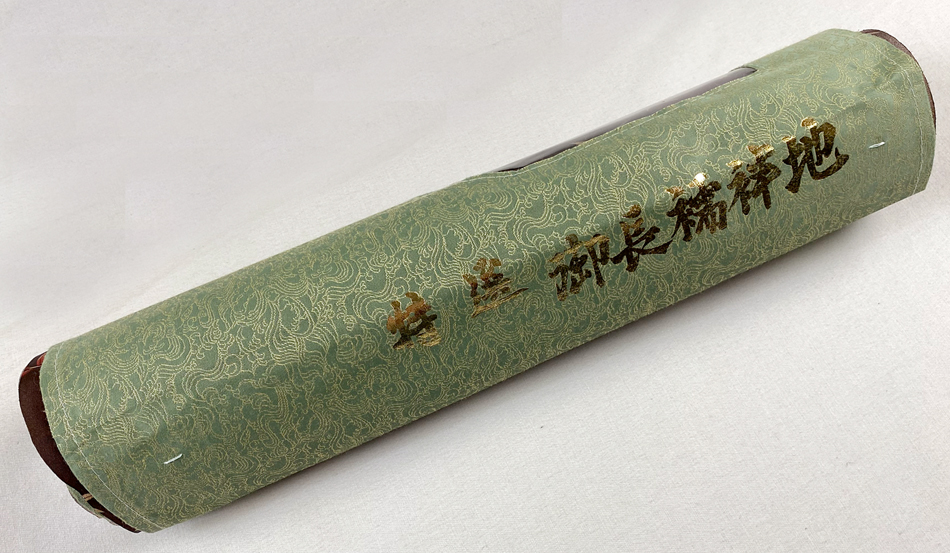 特選 御長襦袢地